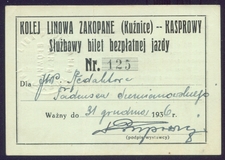 KOLEJ LINOWA ZAKOPANE (Kuźnice) -- KASPROWY
Służbowy bilet bezpłatnej jazdy
Nr. 125
Dla JWP. Redaktora
Tadeusza
Ważny do 31 grudnia 1936 r.
(podpis wystawcy)